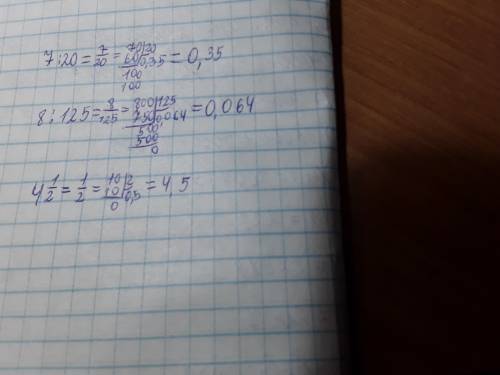 7:20 = 7/20 = 70|20 = 0,35
60|0,35
100
100
8:125 = 8/125 = 800|125 = 0,064
750|0,064
500
500
0
4 1/2 = 1/2 = 10|2 = 4,5
10|0,5
0